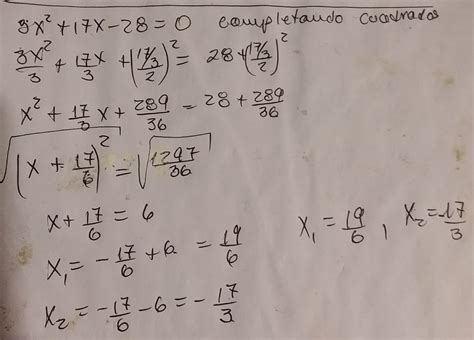 3x² + 17x - 28 = 0 completando cuadrados
3x²/3 + 17x/3 + (17/3/2)² = 28 + (17/3/2)²
x² + 17/3 x + 289/36 = 28 + 289/36
√(x + 17/6)² = √1297/36
x + 17/6 = 6
x₁ = -17/6 + 6 = 19/6 x₁ = 19/6 , x₂ = -17/3
x₂ = -17/6 - 6 = -17/3